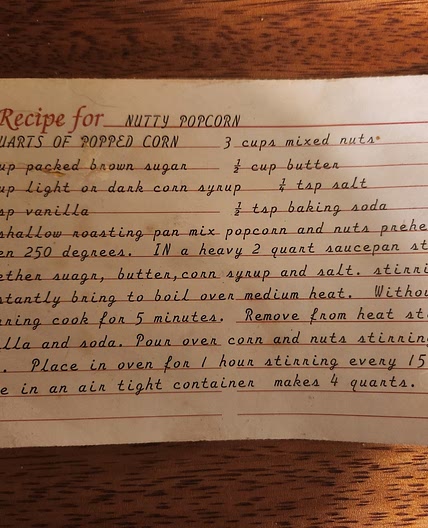 Recipe for NUTTY POPCORN
UARTS OF POPPED CORN 3 cups mixed nuts*
up packed brown sugar ½ cup butter
up light or dark corn syrup ¼ tsp salt
sp vanilla ½ tsp baking soda
shallow roasting pan mix popcorn and nuts prehe
en 250 degrees. IN a heavy 2 quart saucepan st
ether suagr, butter,corn syrup and salt. stirri
stantly bring to boil over medium heat. Withou
rring cook for 5 minutes. Remove from heat sti
illa and soda. Pour over corn and nuts stirring
. Place in oven for 1 hour stirring every 15
e in an air tight container makes 4 quarts.